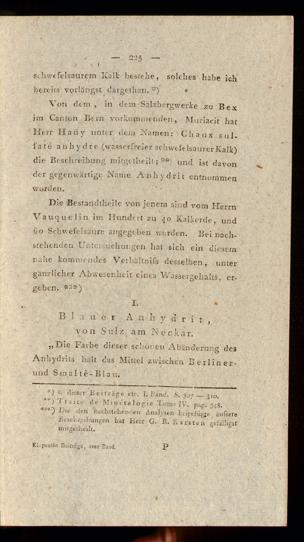 — 225 —
schwefelsaurem Kalk bestehe, solches habe ich
bereits vorlängst dargethan. *)
Von dem, in dem Salzbergwerke zu Bex
im Canton Bern vorkommenden, Muriacit hat
Herr Haüy unter dem Namen: Chaux sul-
faté anhydre (wasserfreier schwefelsaurer Kalk)
die Beschreibung mitgetheilt; **) und ist davon
der gegenwärtige Name Anhydrit entnommen
worden.
Die Bestandtheile von jenem sind vom Herrn
Vauquelin im Hundert zu 40 Kalkerde, und
60 Schwefelsäure angegeben worden. Bei nach-
stehenden Untersuchungen hat sich ein diesem
nahe kommendes Verhältniss desselben, unter
gänzlicher Abwesenheit eines Wassergehalts, er-
geben. ***)
I.
Blauer Anhydrit,
von Sulz am Neckar.
„Die Farbe dieser schönen Abänderung des
Anhydrits hält das Mittel zwischen Berliner-
und Smalte-Blau.
*) S. dieser Beiträge etc. I. Band. S. 307 — 310.
**) Traité de Minéralogie Tome IV. pag. 348.
***) Die den nachstehenden Analysen beigefügte äussere
Beschreibungen hat Herr G. R. Karsten gefälligst
mitgetheilt.
Klaproths Beiträge, 4ter Band. P